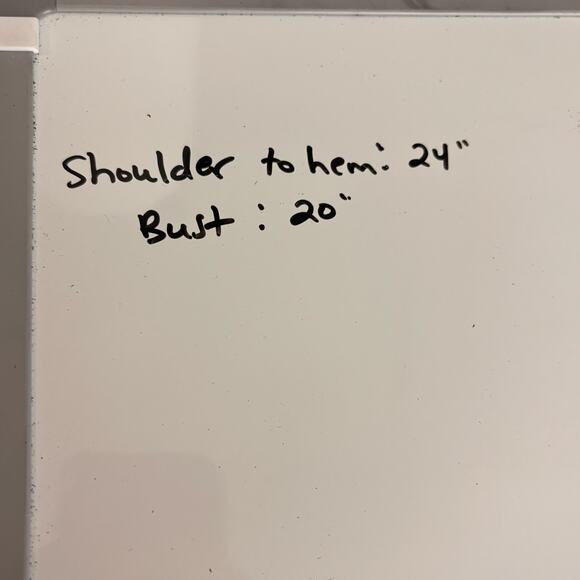 Shoulder to hem: 24"
Bust: 20"